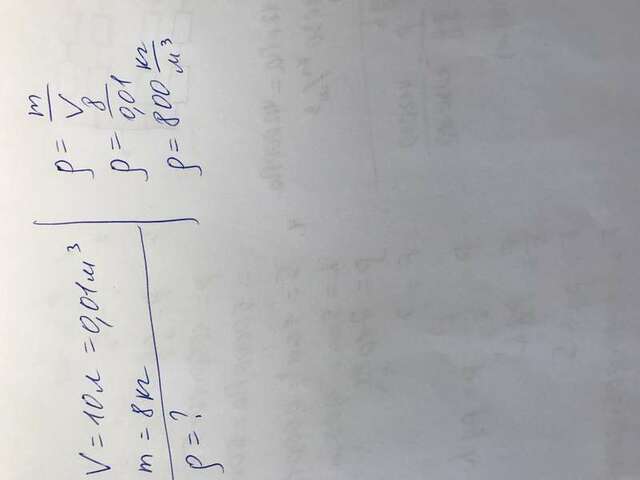 V = 10 л = 0,01 м³
m = 8 кг
ρ = ?
ρ = m/V
ρ = 8/0,01
ρ = 800 кг/м³